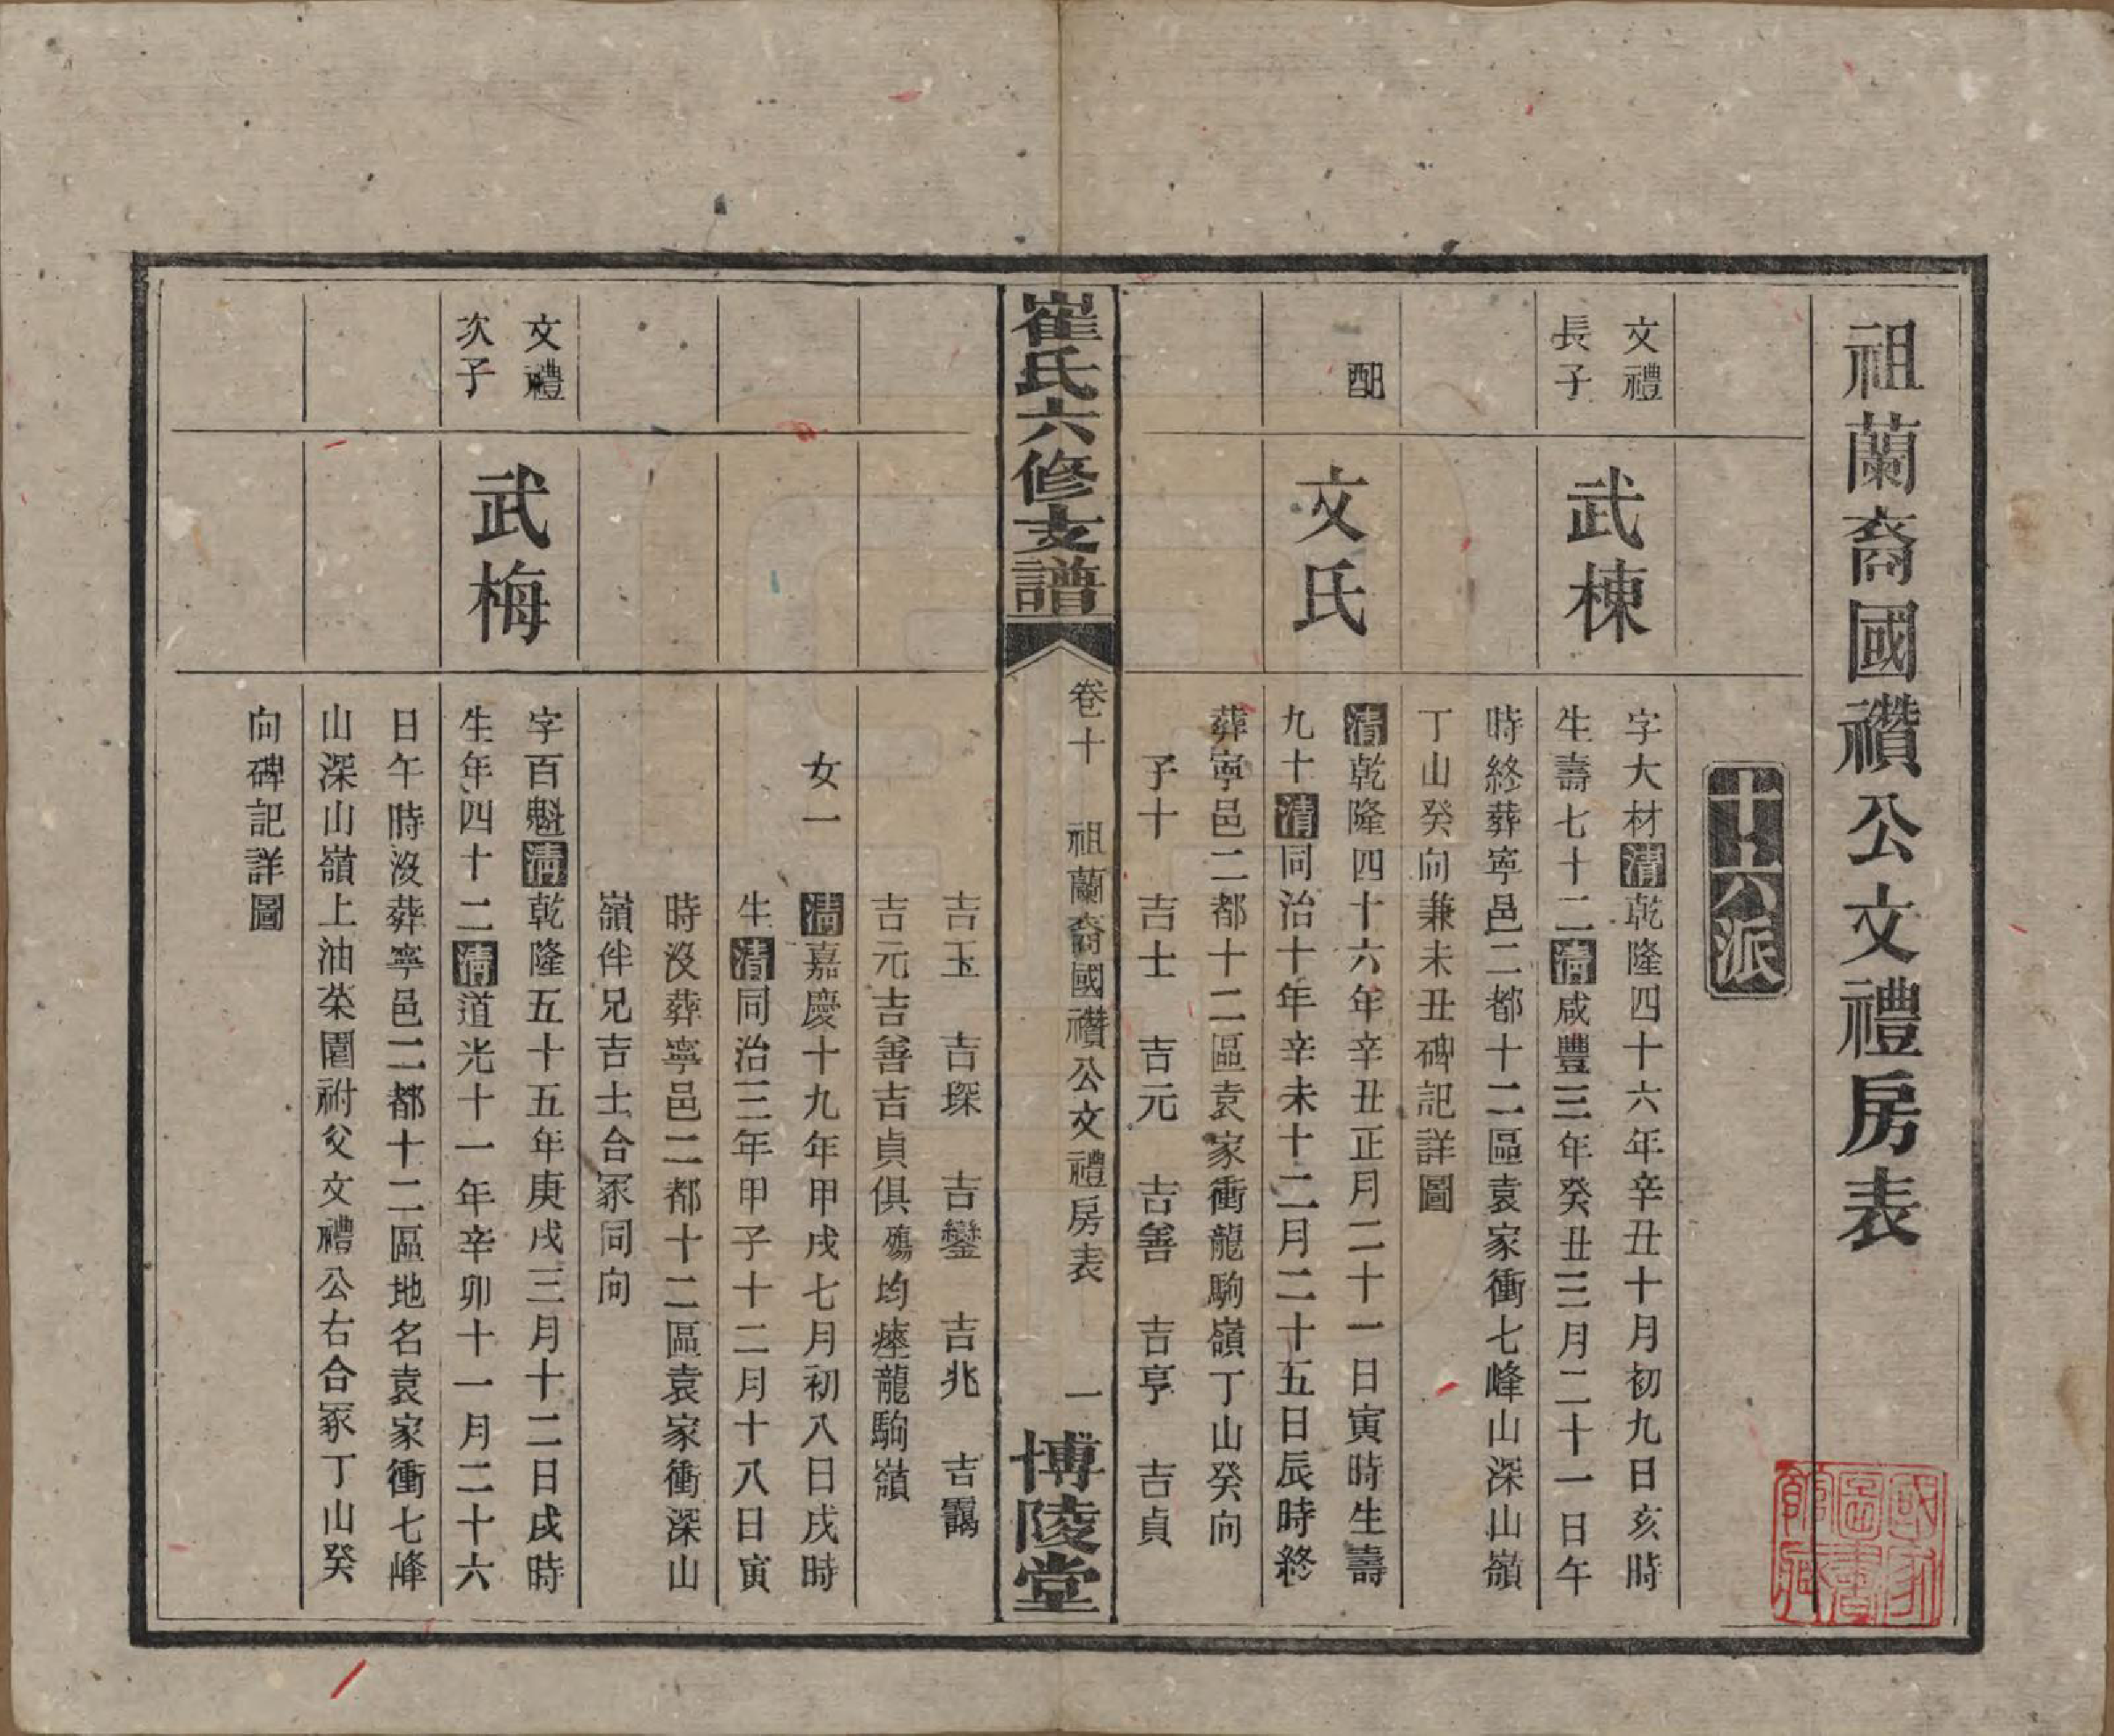 祖蘭裔國禶公文禮房表
十六派
文禮
長子
武棟
字大材清乾隆四十六年辛丑十月初九日亥時
生壽七十二清咸豐三年癸丑三月二十一日午
時終葬寧邑二都十二區袁家衝七峰山深山嶺
丁山癸向兼未丑碑記詳圖
配
文氏
清乾隆四十六年辛丑正月二十一日寅時生壽
九十清同治十年辛未十二月二十五日辰時終
葬寧邑二都十二區袁家衝龍駒嶺丁山癸向
子十 吉士 吉元 吉善 吉亨 吉貞
崔氏六修支譜
卷十 祖蘭裔國禶公文禮房表 一
博陵堂
吉玉 吉琛 吉鑾 吉兆 吉靄
吉元吉善吉貞俱殤均瘞龍駒嶺
女一 清嘉慶十九年甲戌七月初八日戌時
生清同治三年甲子十二月十八日寅
時沒葬寧邑二都十二區袁家衝深山
嶺伴兄吉士合冢同向
文禮
次子
武梅
字百魁清乾隆五十五年庚戌三月十二日戌時
生年四十二清道光十一年辛卯十一月二十六
日午時沒葬寧邑二都十二區地名袁家衝七峰
山深山嶺上油茶園祔父文禮公右合冢丁山癸
向碑記詳圖
國家圖書館藏